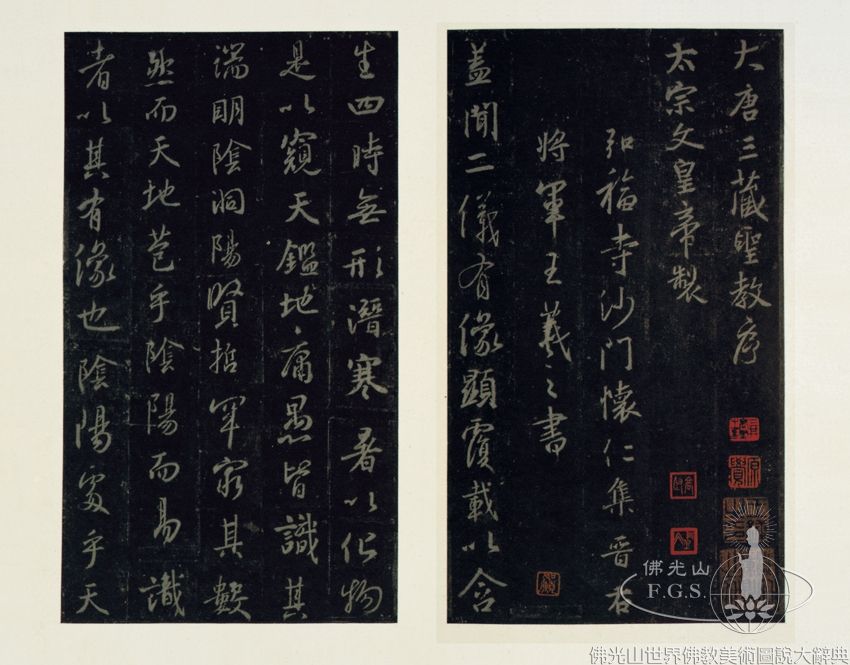 大唐三藏聖教序
太宗文皇帝製
弘福寺沙門懷仁集晉右
將軍王羲之書
蓋聞二儀有像顯覆載以含
生四時無形潛寒暑以化物
是以窺天鑑地庸愚皆識其
端明陰洞陽賢哲罕窮其數
然而天地苞乎陰陽而易識
者以其有像也陰陽處乎天
佛光山
F.G.S.
佛光山世界佛教美術圖說大辭典